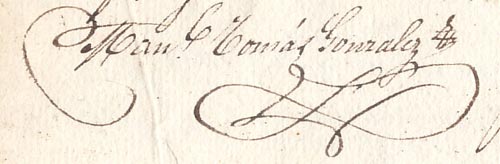 Man.l Tomás Gonzalez